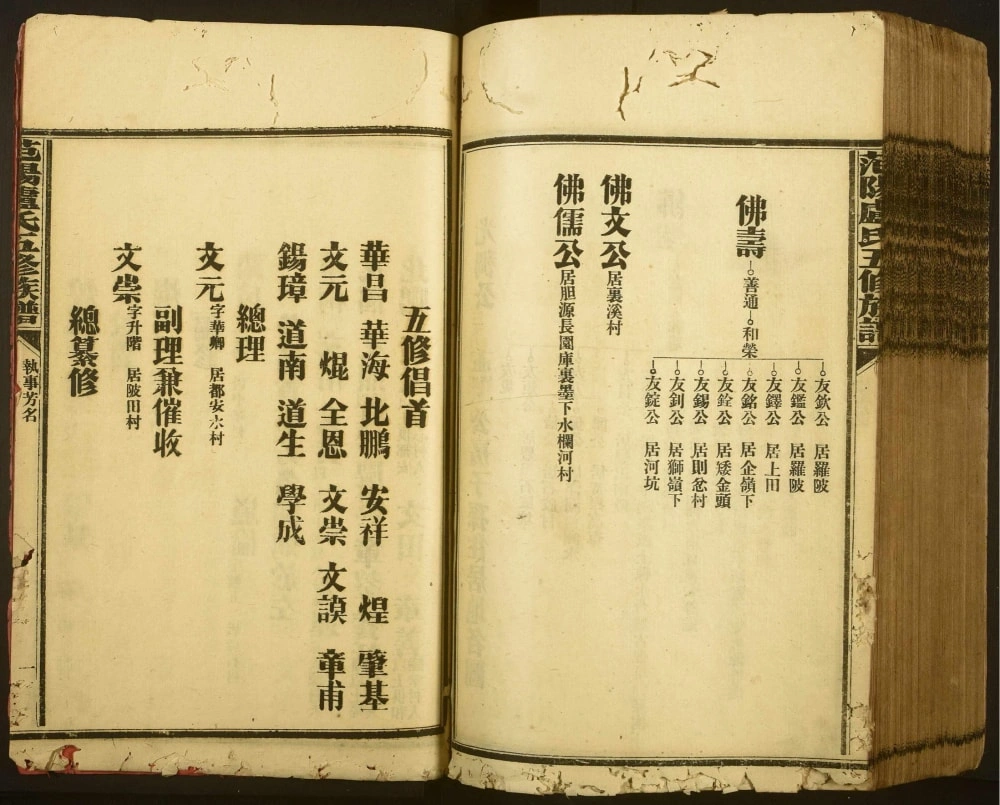 范陽盧氏五修族譜
佛壽 善通 和榮
友欽公 居羅陂
友鑑公 居羅陂
友鐸公 居上田
友銘公 居企嶺下
友銓公 居矮金頭
友錫公 居則忿村
友釗公 居獅嶺下
友錠公 居河坑
佛文公 居裏溪村
佛儒公 居胆源長園庫裏墨下水欄河村
五修倡首
華昌 華海 北鵬 安祥 煌 肇基
文元 焜 全恩 文崇 文謨 章甫
鍚璋 道南 道生 學成
總理
文元 字華卿 居都安六村
副理兼催收
文崇 字升階 居陂田村
總纂修
范陽盧氏五修族譜 執事芳名 一